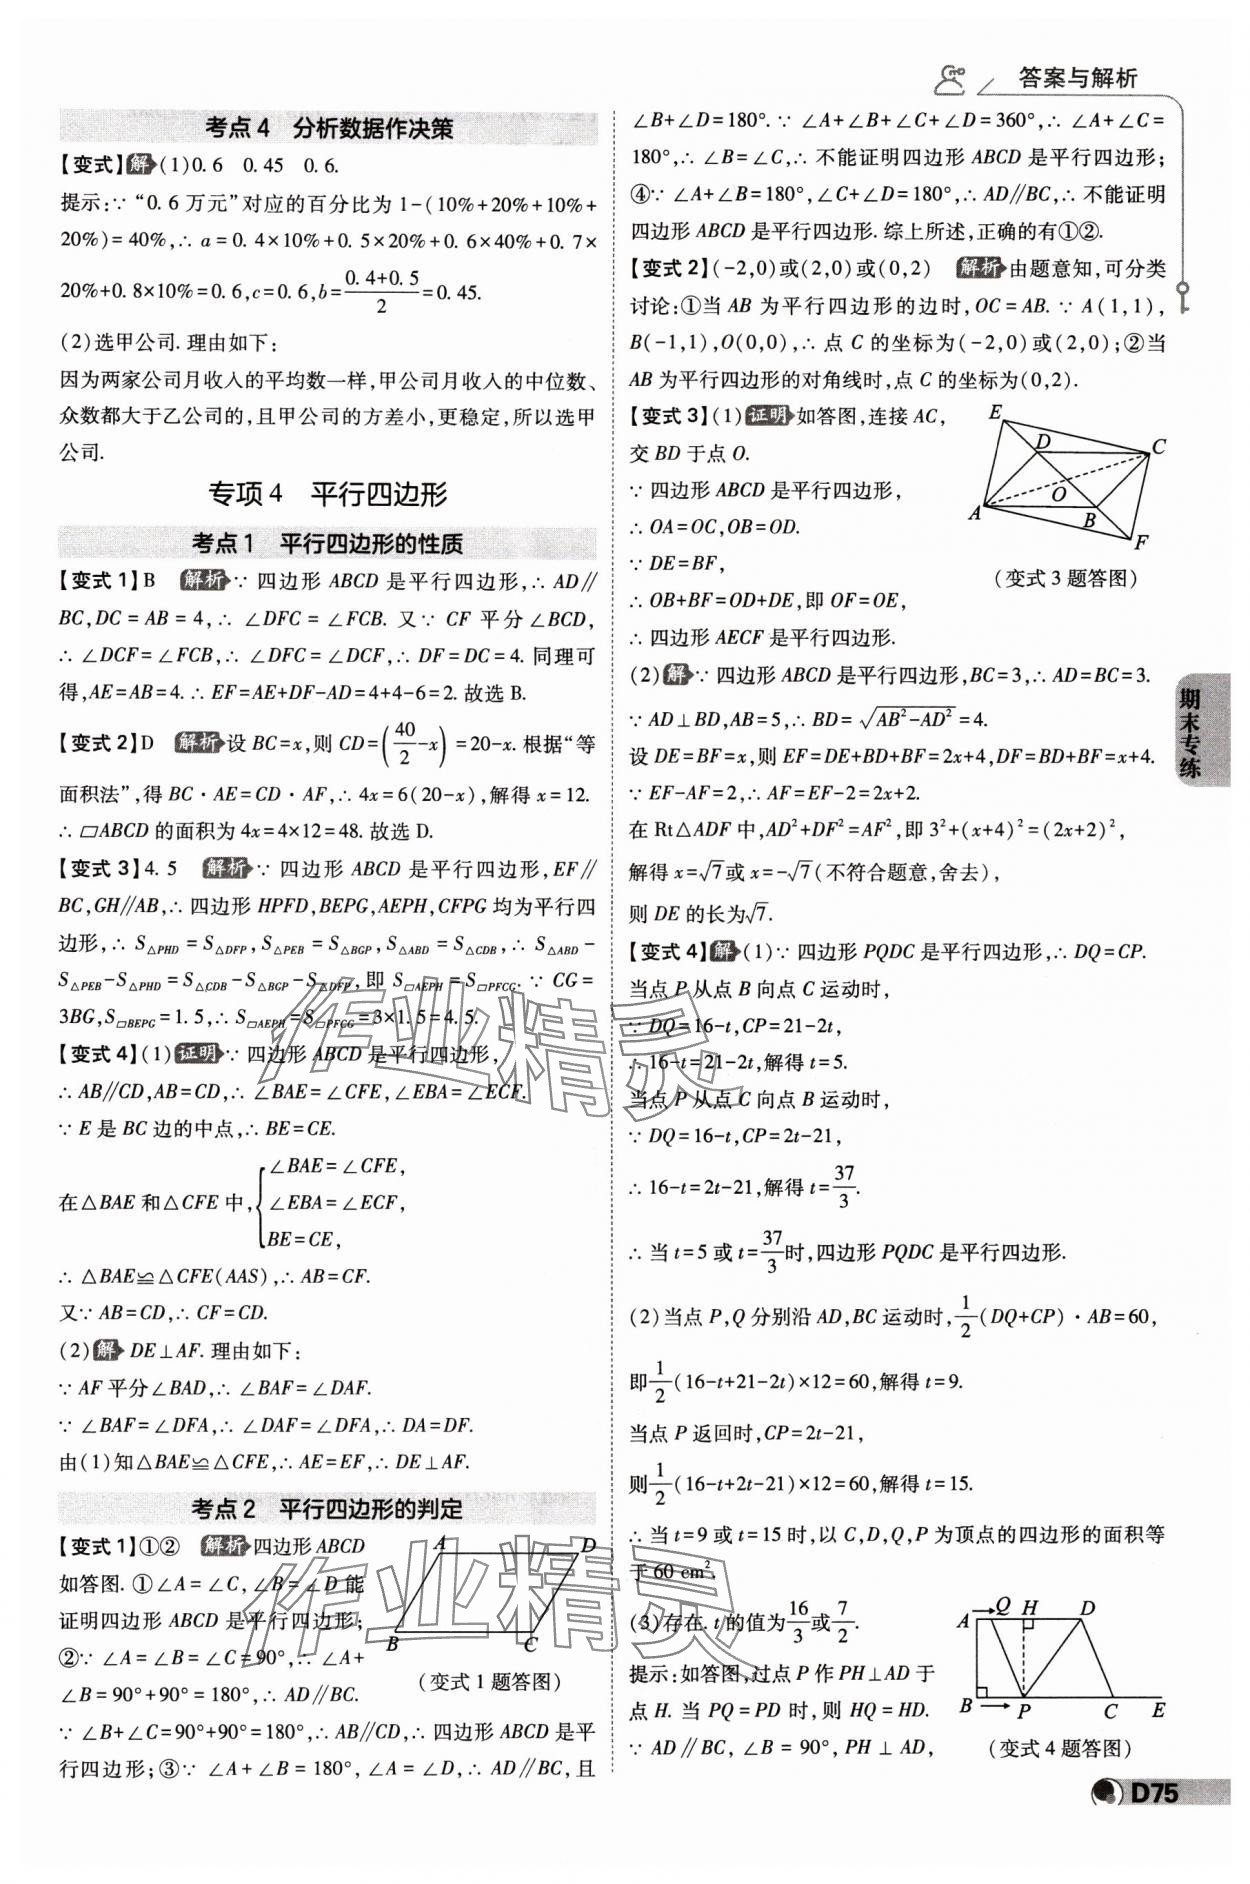 答案与解析
考点 4 分析数据作决策
【变式】解 (1)0.6 0.45 0.6.
提示:∵ “0.6 万元”对应的百分比为 1-(10%+20%+10%+
20%)=40%,∴ a=0.4×10%+0.5×20%+0.6×40%+0.7×
20%+0.8×10%=0.6,c=0.6,b=\frac{0.4+0.5}{2}=0.45.
(2)选甲公司. 理由如下:
因为两家公司月收入的平均数一样,甲公司月收入的中位数、
众数都大于乙公司的,且甲公司的方差小,更稳定,所以选甲
公司.
专项 4 平行四边形
考点 1 平行四边形的性质
【变式 1】B 解析 ∵ 四边形 ABCD 是平行四边形,∴ AD∥
BC,DC=AB=4,∴ ∠DFC=∠FCB. 又∵ CF 平分∠BCD,
∴ ∠DCF=∠FCB,∴ ∠DFC=∠DCF,∴ DF=DC=4. 同理可
得,AE=AB=4. ∴ EF=AE+DF-AD=4+4-6=2. 故选 B.
【变式 2】D 解析 设 BC=x,则 CD=(\frac{40}{2}-x)=20-x. 根据“等
面积法”,得 BC·AE=CD·AF,∴ 4x=6(20-x),解得 x=12.
∴ ▱ABCD 的面积为 4x=4×12=48. 故选 D.
【变式 3】4.5 解析 ∵ 四边形 ABCD 是平行四边形,EF∥
BC,GH∥AB,∴ 四边形 HPFD,BEPG,AEPH,CFPG 均为平行四
边形,∴ S△PHD=S△DFP,S△PEB=S△BGP,S△ABD=S△CDB,∴ S△ABD-
S△PEB-S△PHD=S△CDB-S△BGP-S△DFP,即 S▱AEPH=S▱PFCG. ∵ CG=
3BG,S▱BEPG=1.5,∴ S▱AEPH=S▱PFCG=3×1.5=4.5.
【变式 4】(1)证明 ∵ 四边形 ABCD 是平行四边形,
∴ AB∥CD,AB=CD,∴ ∠BAE=∠CFE,∠EBA=∠ECF.
∵ E 是 BC 边的中点,∴ BE=CE.
∠BAE=∠CFE,
在△BAE 和△CFE 中,{ ∠EBA=∠ECF,
BE=CE,
∴ △BAE≌△CFE(AAS),∴ AB=CF.
又∵ AB=CD,∴ CF=CD.
(2)解 DE⊥AF. 理由如下:
∵ AF 平分∠BAD,∴ ∠BAF=∠DAF.
∵ ∠BAF=∠DFA,∴ ∠DAF=∠DFA,∴ DA=DF.
由(1)知△BAE≌△CFE,∴ AE=EF,∴ DE⊥AF.
考点 2 平行四边形的判定
【变式 1】①② 解析 四边形 ABCD
如答图. ①∠A=∠C,∠B=∠D 能
证明四边形 ABCD 是平行四边形;
②∵ ∠A=∠B=∠C=90°,∴ ∠A+
∠B=90°+90°=180°,∴ AD∥BC.
A D
B C
(变式 1 题答图)
∵ ∠B+∠C=90°+90°=180°,∴ AB∥CD,∴ 四边形 ABCD 是平
行四边形;③∵ ∠A+∠B=180°,∠A=∠D,∴ AD∥BC,且
∠B+∠D=180°. ∵ ∠A+∠B+∠C+∠D=360°,∴ ∠A+∠C=
180°,∴ ∠B=∠C,∴ 不能证明四边形 ABCD 是平行四边形;
④∵ ∠A+∠B=180°,∠C+∠D=180°,∴ AD∥BC,∴ 不能证明
四边形 ABCD 是平行四边形. 综上所述,正确的有①②.
【变式 2】(-2,0)或(2,0)或(0,2) 解析 由题意知,可分类
讨论:①当 AB 为平行四边形的边时,OC=AB. ∵ A(1,1),
B(-1,1),O(0,0),∴ 点 C 的坐标为(-2,0)或(2,0);②当
AB 为平行四边形的对角线时,点 C 的坐标为(0,2).
【变式 3】(1)证明 如答图,连接 AC,
交 BD 于点 O.
∵ 四边形 ABCD 是平行四边形,
∴ OA=OC,OB=OD.
∵ DE=BF,
∴ OB+BF=OD+DE,即 OF=OE,
∴ 四边形 AECF 是平行四边形.
E
D C
O
A B
F
(变式 3 题答图)
(2)解 ∵ 四边形 ABCD 是平行四边形,BC=3,∴ AD=BC=3.
∵ AD⊥BD,AB=5,∴ BD=\sqrt{AB²-AD²}=4.
设 DE=BF=x,则 EF=DE+BD+BF=2x+4,DF=BD+BF=x+4.
∵ EF-AF=2,∴ AF=EF-2=2x+2.
在 Rt△ADF 中,AD²+DF²=AF²,即 3²+(x+4)²=(2x+2)²,
解得 x=√7或 x=-√7(不符合题意,舍去),
则 DE 的长为√7.
【变式 4】解 (1)∵ 四边形 PQDC 是平行四边形,∴ DQ=CP.
当点 P 从点 B 向点 C 运动时,
∵ DQ=16-t,CP=21-2t,
∴ 16-t=21-2t,解得 t=5.
当点 P 从点 C 向点 B 运动时,
∵ DQ=16-t,CP=2t-21,
∴ 16-t=2t-21,解得 t=\frac{37}{3}.
∴ 当 t=5 或 t=\frac{37}{3}时,四边形 PQDC 是平行四边形.
(2)当点 P,Q 分别沿 AD,BC 运动时,\frac{1}{2}(DQ+CP)·AB=60,
即\frac{1}{2}(16-t+21-2t)×12=60,解得 t=9.
当点 P 返回时,CP=2t-21,
则\frac{1}{2}(16-t+2t-21)×12=60,解得 t=15.
∴ 当 t=9 或 t=15 时,以 C,D,Q,P 为顶点的四边形的面积等
于 60 cm².
(3)存在. t 的值为\frac{16}{3}或\frac{7}{2}.
提示:如答图,过点 P 作 PH⊥AD 于
点 H. 当 PQ=PD 时,则 HQ=HD.
∵ AD∥BC,∠B=90°,PH⊥AD,
A Q H D
B P C E
(变式 4 题答图)
期末专练
D75
作业精灵
作业精灵